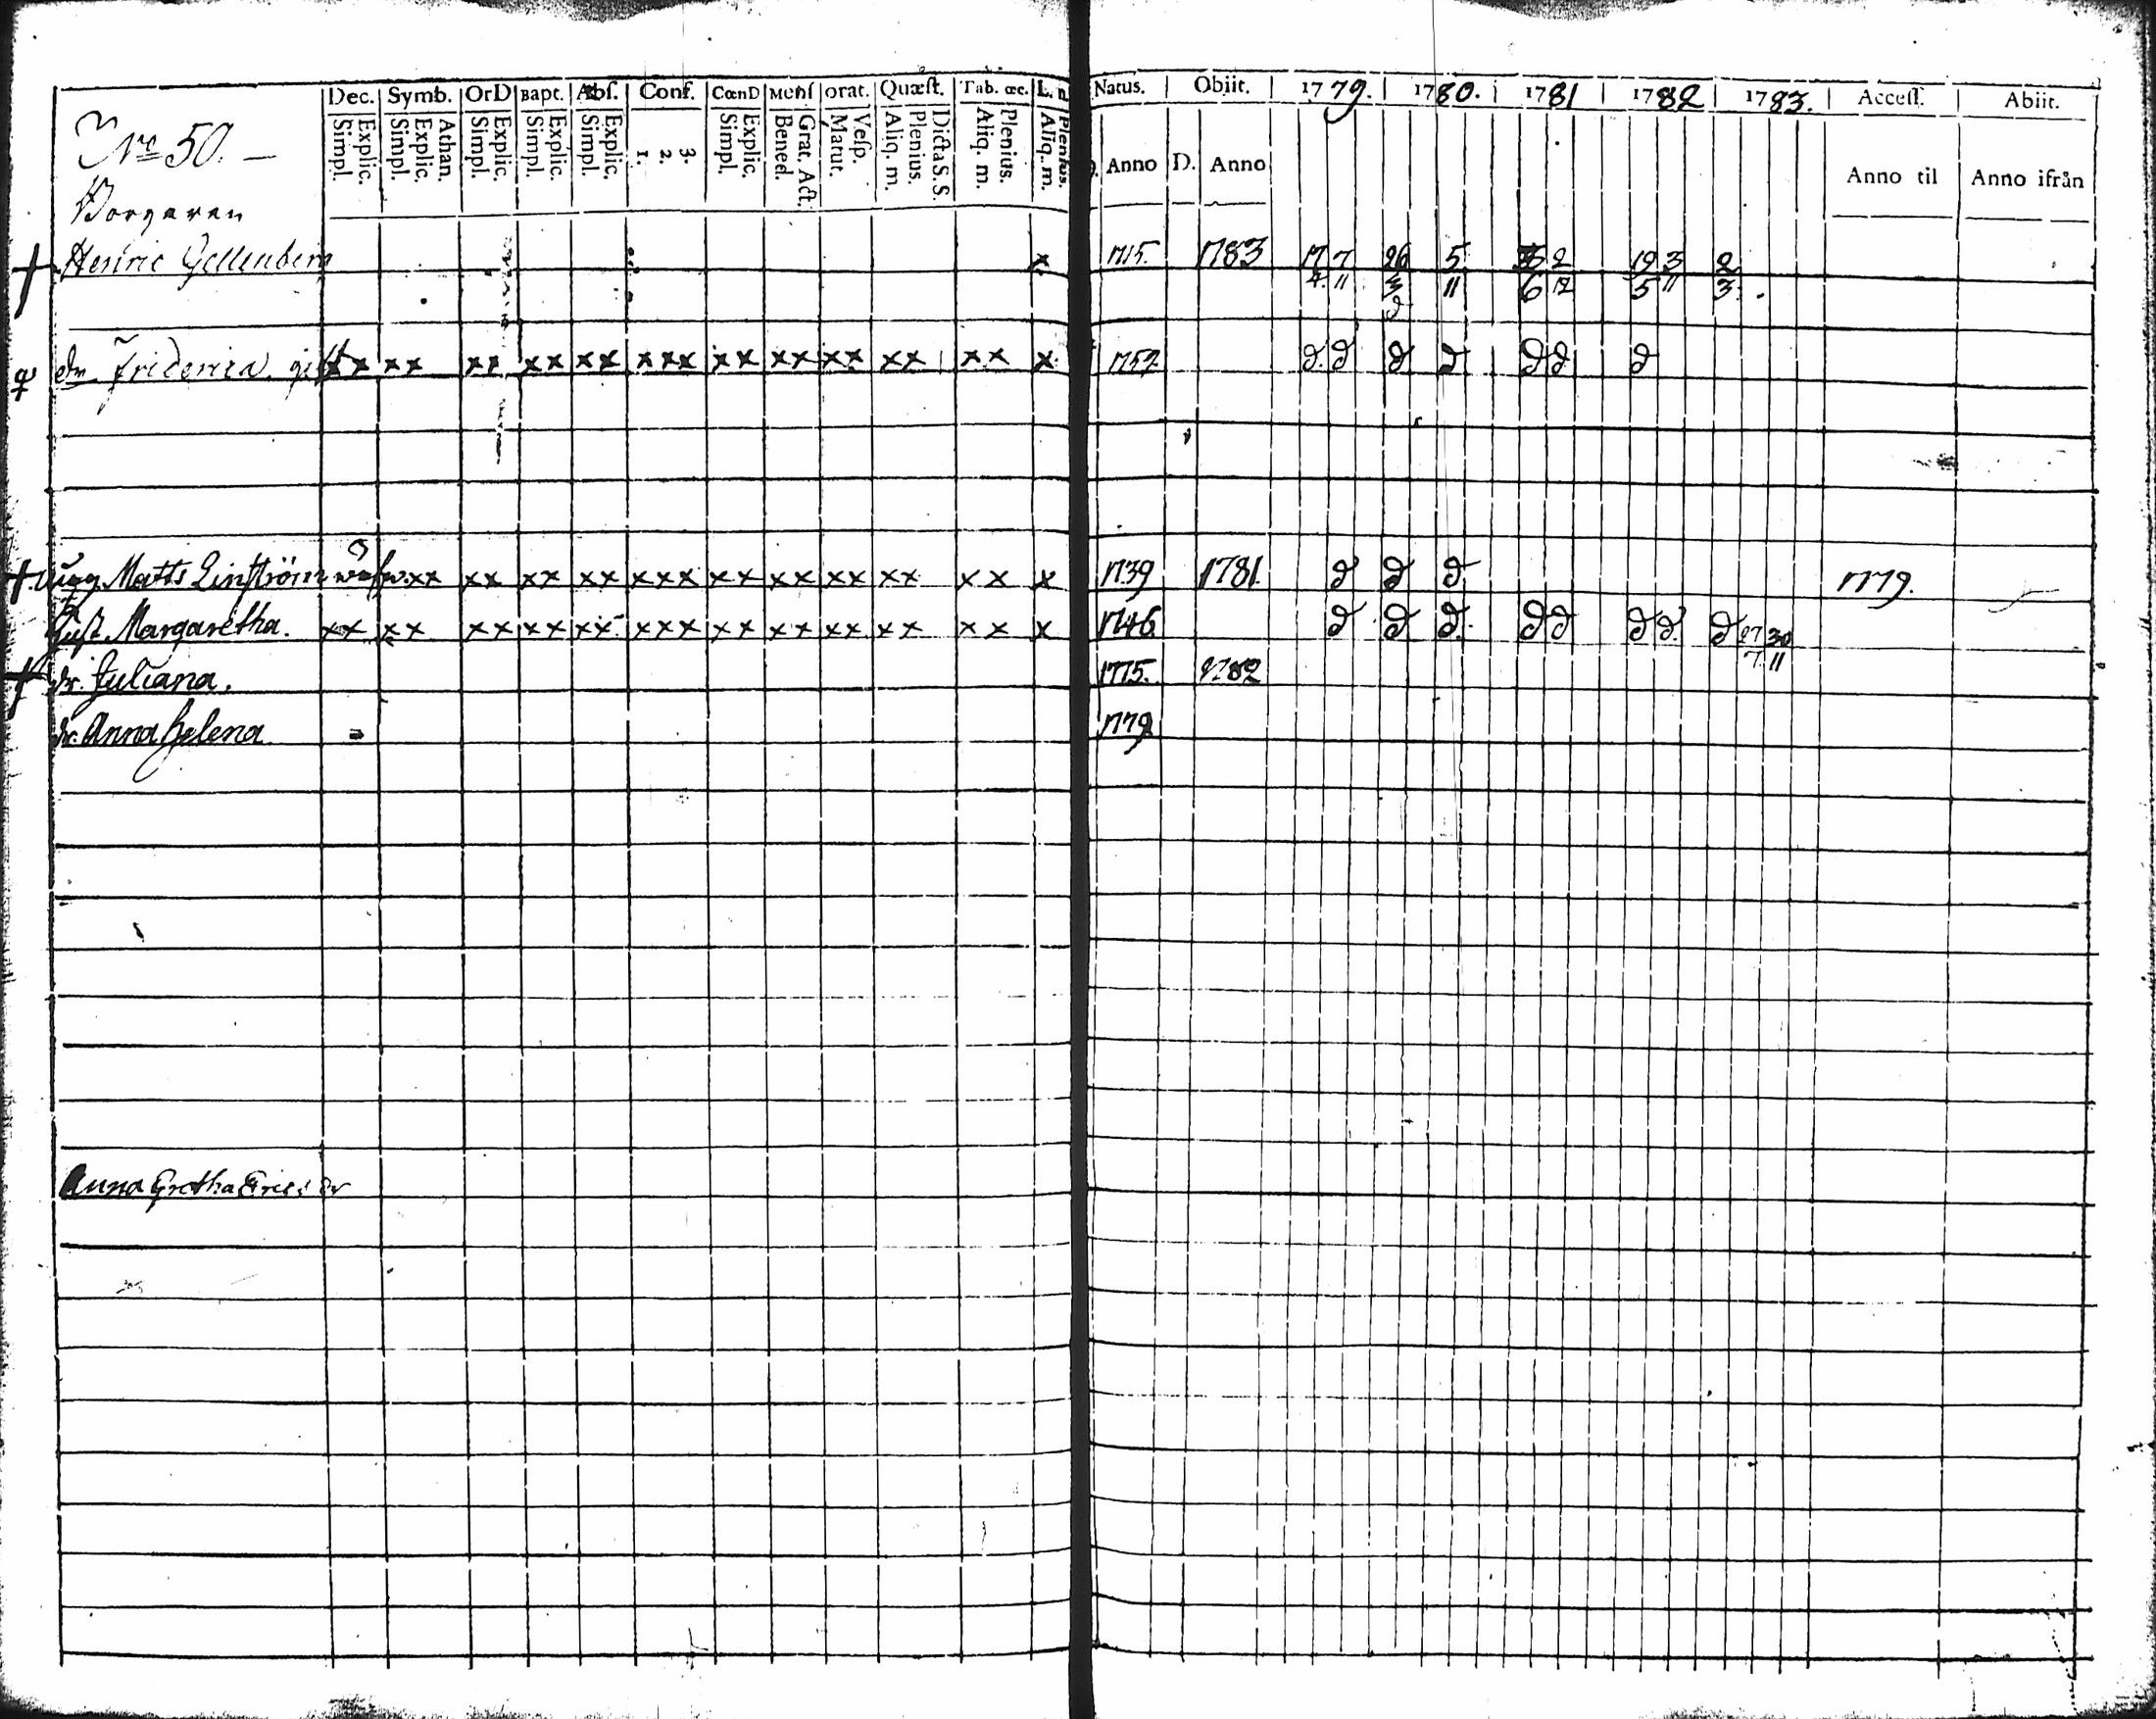 Dec. Symb. OrD Bapt. Abſ. Conf. CœnD Menſ orat. Quæſt. Tab. œc. L. n Natus. Obiit. 1779. 1780. 1781 1782 1783. Acceſſ. Abiit.
Simpl. Explic. Simpl. Explic. Athan. Simpl. Explic. Simpl. Explic. Simpl. Explic. 1. 2. 3. Simpl. Explic. Bened. Grat. Act. Matut. Veſp. Aliq. m. Plenius. Dicta S. S. Aliq. m. Plenius. Aliq. m. Plenius. Anno D. Anno Anno til Anno ifrån
Nro 50. —
Borgaren
Henric Gellenberg x 1715. 1783 17/4 7/11 26/3 5/11 6 2/12 19/5 3/11 2/3
dr. Friderica gift xx xx xx xx xx xxx xx xx xx xx xx x 1752 ∂ ∂ ∂ ∂ ∂ ∂ ∂
Matts Linström xx xx xx xx xxx xx xx xx xx xx x 1739 1781 ∂ ∂ ∂ 1779.
Hust. Margaretha. xx xx xx xx xx xxx xx xx xx xx xx x 1746 ∂ ∂ ∂ ∂∂ ∂∂ ∂ 27/7 30/11
dr. Juliana. 1775. 1782
dr. Anna Helena 1779
Anna Gretha Erics dr